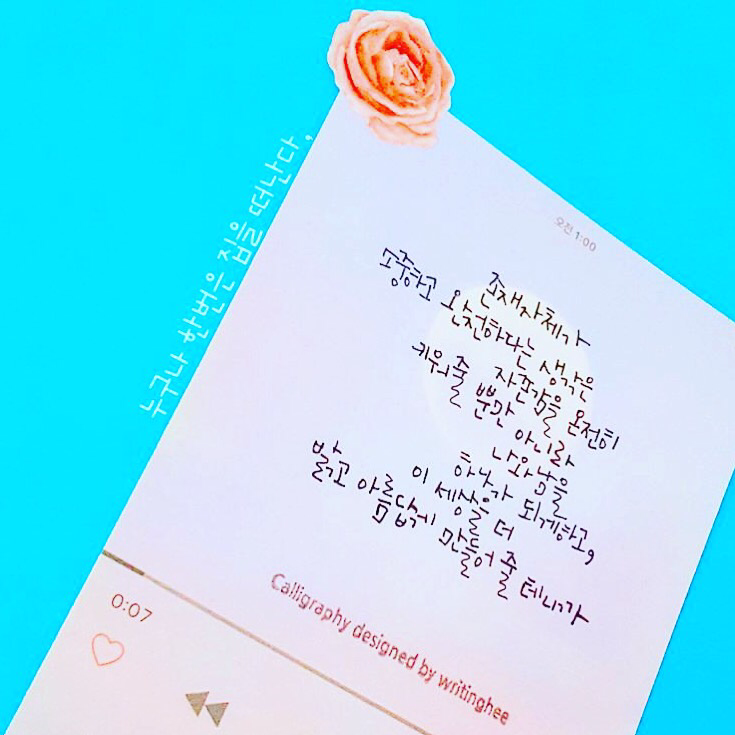 누구나 한번은 집을 떠난다,
오전 1:00
존재자체가
소중하고 완전하다는 생각은
자존감을 온전히
키워줄 뿐만 아니라
나와 남을
하나가 되게하고,
이 세상을 더
밝고 아름답게 만들어 줄 테니까
Calligraphy designed by writinghee
0:07